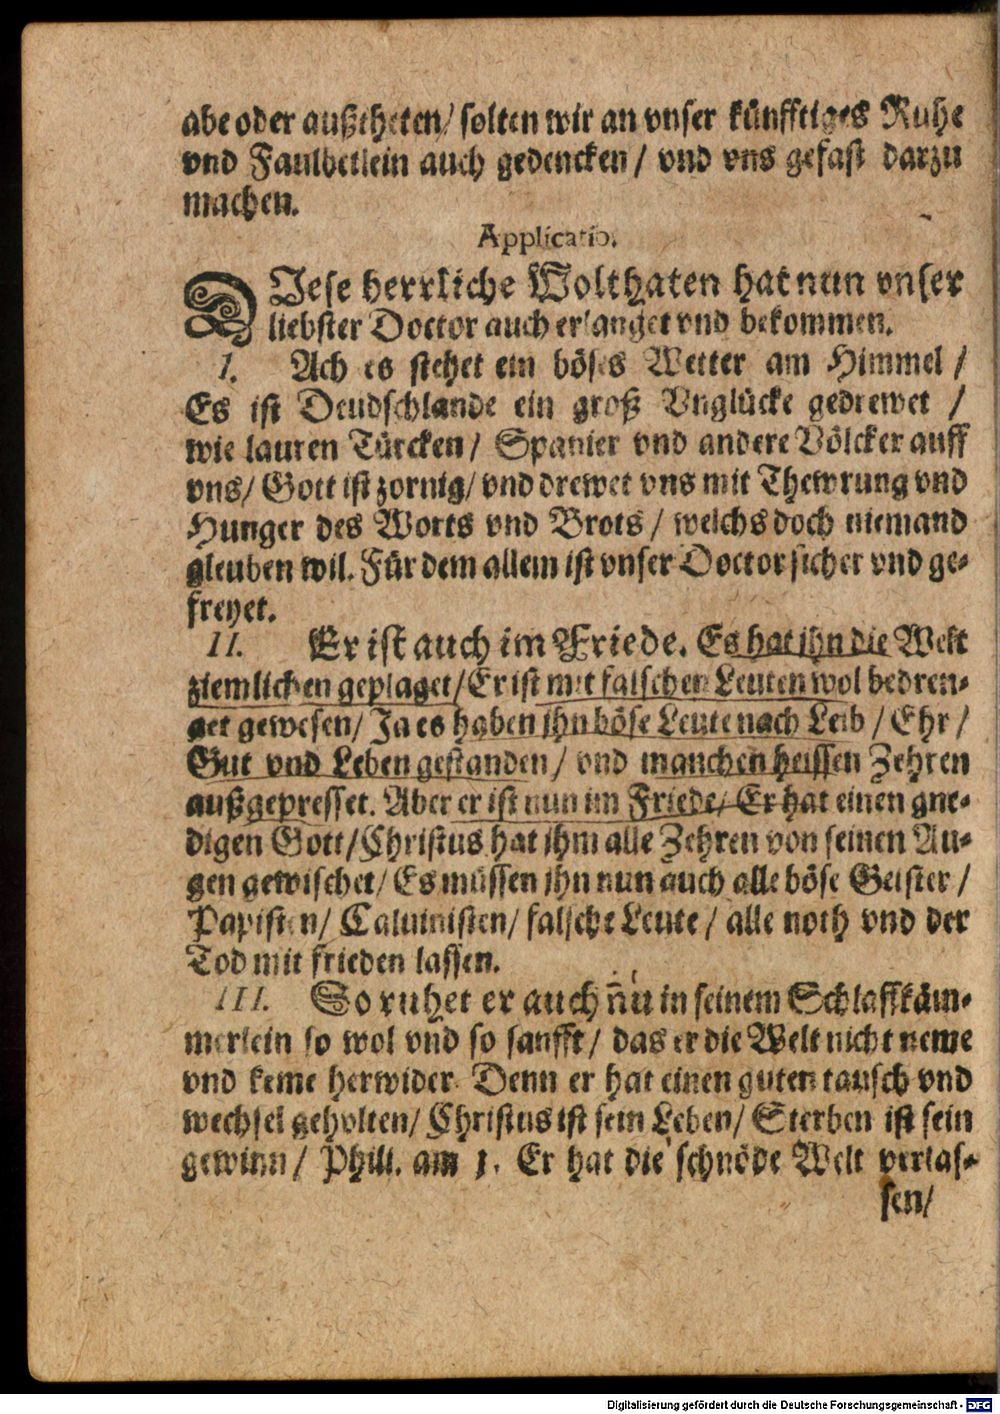 abe oder außtheten/ solten wir an vnser künfftiges Ruhe
vnd Faulbettlein auch gedencken / vnd vns gefast darzu
machen.
Applicatio.
DIese herrliche Wolthaten hat nun vnser
liebster Doctor auch erlanget vnd bekommen.
I. Ach es stehet ein böses Wetter am Himmel /
Es ist Deudschlande ein groß Vnglücke gedrewet /
wie lauren Türcken/ Spanier vnd andere Völcker auff
vns/ Gott ist zornig/ vnd drewet vns mit Thewrung vnd
Hunger des Worts vnd Brots / welchs doch niemand
gleuben wil. Für dem allem ist vnser Doctor sicher vnd ge-
freyet.
II. Er ist auch im Friede. Es hat ihn die Welt
ziemlichen geplaget/ Er ist mit falschen Leuten wol bedren-
get gewesen/ Ja es haben ihn böse Leute nach Leib / Ehr /
Gut vnd Leben gestanden/ vnd manchen heissen Zehren
außgepresset. Aber er ist nun im Friede/ Er hat einen gne-
digen Gott/ Christus hat ihm alle Zehren von seinen Au-
gen gewischet/ Es müssen ihn nun auch alle böse Geister /
Papisten/ Caluinisten/ falsche Leute / alle noth vnd der
Tod mit frieden lassen.
III. So ruhet er auch nu in seinem Schlaffkäm-
merlein so wol vnd so sanfft / das er die Welt nicht neme
vnd keme herwider. Denn er hat einen guten tausch vnd
wechsel geholten/ Christus ist sein Leben/ Sterben ist sein
gewinn / Phill. am 1. Er hat die schnöde Welt verlas-
sen/
Digitalisierung gefördert durch die Deutsche Forschungsgemeinschaft - DFG